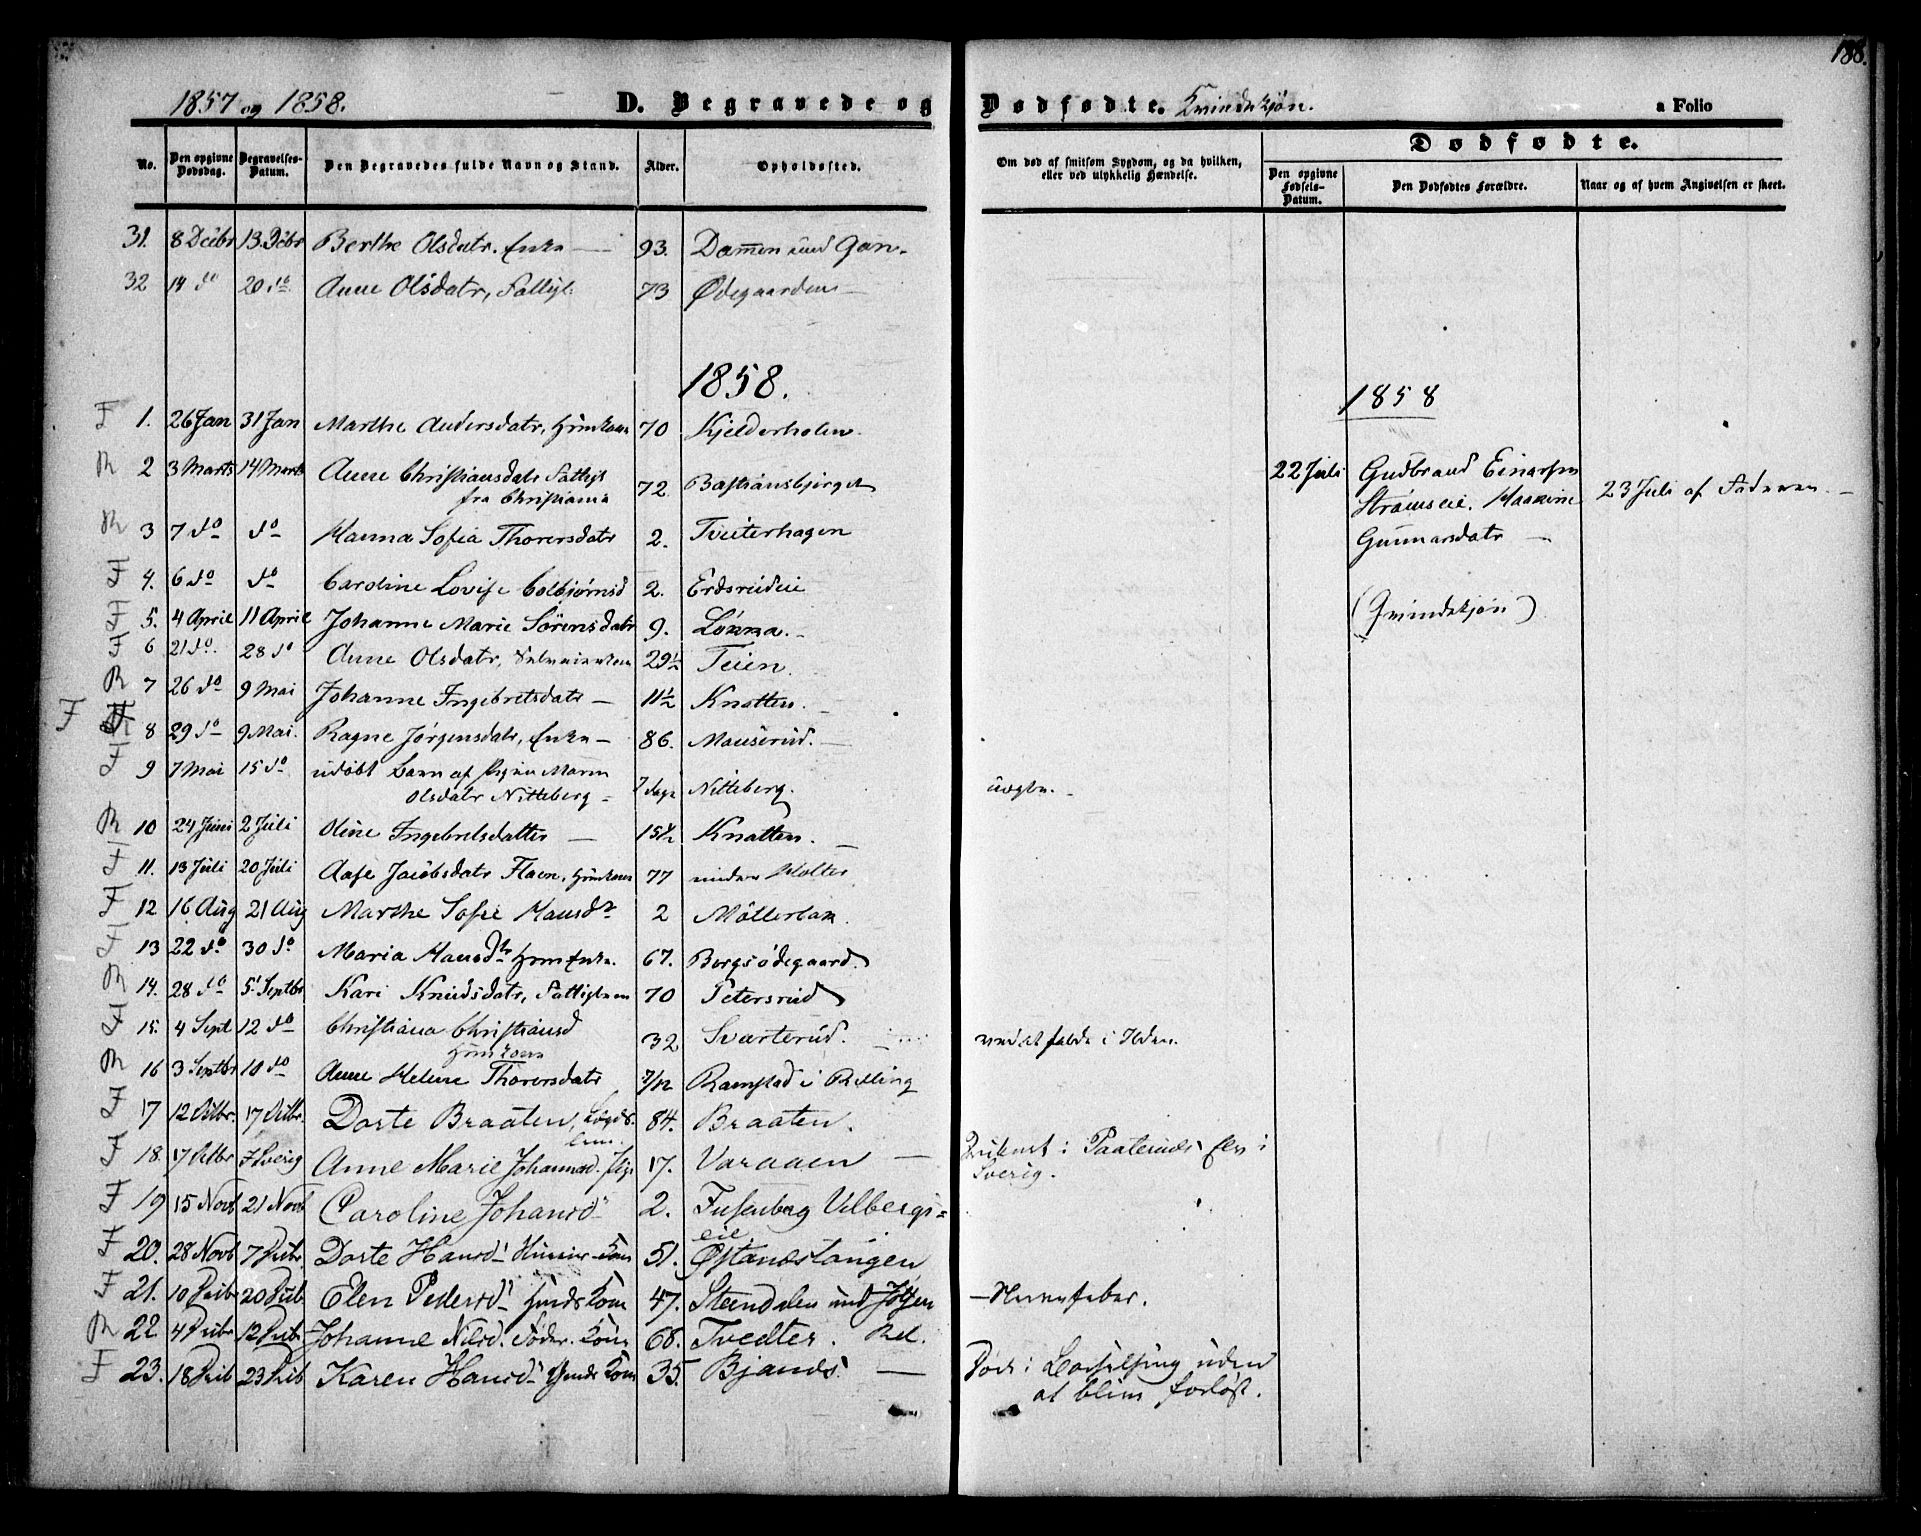 188.
1857 og 1858. D. Begravede og Dødfødte. Kvindekjøn. a Folio
No. Den opgivne Dødsdag. Begravelses-Datum. Den Begravedes fulde Navn og Stand. Alder. Opholdssted. Om død af smitsom Sygdom, og da hvilken, eller ved ulykkelig Hændelse. Dødfødte.
Den opgivne Fødsels-Datum. Den Dødfødtes Forældre. Naar og af hvem Angivelsen er skeet.
31. 8 Decbr 13. Decbr Berthe Olsdatr. Enke — 93. Dammen und
32 14 do 20 do Anne Olsdatr, Fattigl. 73 Ødegaarden
1858.
F 1. 26 Jan 31 Jan Marthe Andersdatr, Huuskone 70 Kjelderholen
R 2 3 Marts 14 Marts Anne Christiansdatr Fattigl 72. Bastiansbjerget
fra Christiania
R 3 7 do do Hanna Sofia Thorersdatr 2. Tveterhagen
F 4. 6 do do Caroline Lovise Colbjørnsd 2.
F 5. 4 April 11 April Johanne Marie Sørensdatr 9.
F 6 21 do. 28 do Anne Olsdatr, 29½ Teien.
R 7 26 do 9 Mai Johanne Ingebretsdatr — 11½ Knatten.
F 8 29 do 9 Mai. Ragne Jørgensdatr, Enke — 86. Mauserud.
F 9 7 Mai 15 do udøbt Barn af Maren 7 dage Nitteberg. uægte.
Olsdatr Nitteberg
R 10 24 Juni 2 Juli Oline Ingebretsdatter — 15½ Knatten.
F 11. 13 Juli 20 Juli Aase Jacobsdatr Huuskone 77 under Holter
F 12 16 Aug 21 Aug Marthe Sofie Hansdr 2
F 13 22 do 30 do Maria Hansdtr 67. Borgsødegaard
R 14. 28 do 5 Septbr Kari Knudsdatr, Fattiglem 70 Petersrud
F 15. 4 Sept 12 do Christiana Christiansd 32 Svarterud. ved at falde i Ilden.
Huuskone
R 16 3 Septbr 10 do Anne Helene Thorersdatr 7/12 Ramstad i Relling
F 17 12 Octbr. 17 Octbr. Dorte Braaten, Lægds- 84. Braaten.
lem.
F 18. 17 Octbr I Sverig Anne Marie Johannsd. Pige 17. Varaaen — Druknet i Elv i
Sverig.
F 19 15 Novb 21 Novb Caroline Johansd 2. Fusenberg Vilbergs-
eie
F 20. 28 Novb 7 Decbr. Dorte Hansd 51. Østandslangen
F 21. 10 Decbr 20 Decb Elen Pedersd 47. Steendalen und — Nervefeber.
R 22 4 Decbr 12 Decbr Johanne Nilsd. 68. Tvedter. Rel.
F 23. 18 Decb 23 Decb Karen Hansd 35. — Død i Barselseng uden
at blive forløst.
1858
22 Juli Gudbrand Einarsen 23 Juli af Faderen.
Strømseie.
Gunnarsdatr
(Qvindekjøn)